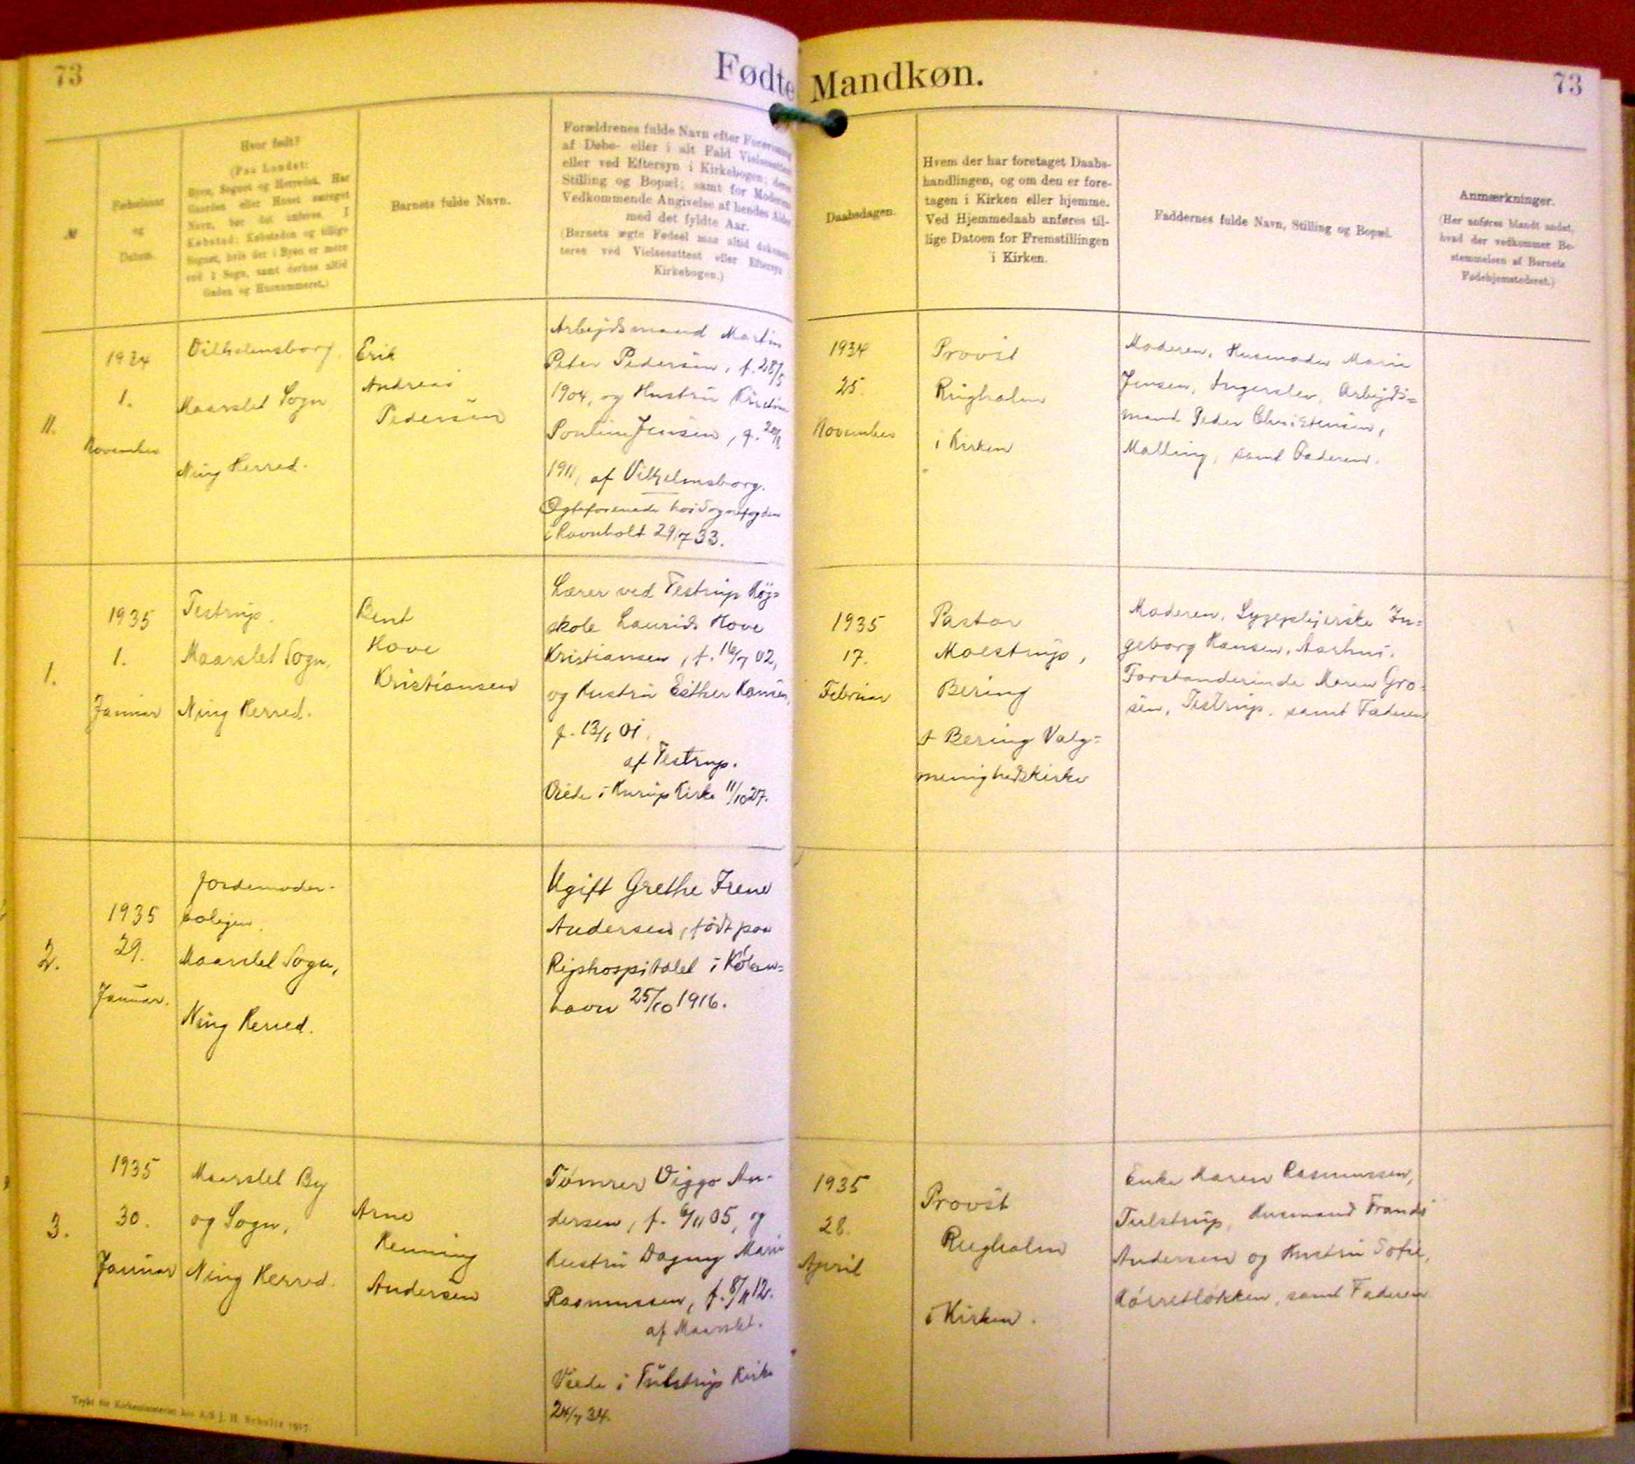 73
Fødte Mandkøn.
73
№
Fødselsaar
og
Datum.
Hvor født?
(Paa Landet:
Byen, Sognet og Herredet. Har
Gaarden eller Huset særeget
Navn, bør det anføres. I
Købstad: Købstaden og tillige
Sognet, hvis der i Byen er mere
end 1 Sogn, samt derhos altid
Gaden og Husnummeret.)
Barnets fulde Navn.
Forældrenes fulde Navn efter
af Døbe- eller i alt Fald
eller ved Eftersyn i Kirkebogen; deres
Stilling og Bopæl; samt for Moderens
Vedkommende Angivelse af hendes Alder
med det fyldte Aar.
(Barnets ægte Fødsel maa altid
teres ved Vielsesattest eller Eftersyn i
Kirkebogen.)
Daabsdagen.
Hvem der har foretaget Daabs-
handlingen, og om den er fore-
tagen i Kirken eller hjemme.
Ved Hjemmedaab anføres til-
lige Datoen for Fremstillingen
i Kirken.
Faddernes fulde Navn, Stilling og Bopæl.
Anmærkninger.
(Her anføres blandt andet,
hvad der vedkommer Be-
stemmelsen af Barnets
Fødehjemstedsret.)
11.
1934
1.
November
Vilhelmsborg,
Maarslet Sogn
Ning Herred.
Erik
Andreas
Pedersen
Arbejdsmand Martin
Peter Pedersen, f. 28/5
1904, og Hustru Kirstine
Pouline Jensen, f.
1911, af Vilhelmsborg.
Ægteforenede hos Sognefogden
i Ravnholt 29/7 33.
1934
25.
November
Provst
Ringholm
i Kirken
Moderen, Husmoder Marie
Jensen, Ingerslev, Arbejds=
mand Peder Christensen,
Malling, samt Faderen.
1.
1935
1.
Januar
Testrup.
Maarslet Sogn,
Ning Herred.
Bent
Hove
Kristiansen
Lærer ved Testrup Høj=
skole Laurids Hove
Kristiansen, f. 16/7 02,
og Hustru Esther Hansen,
f. 13/1 01.
af Testrup.
Viede i Kirke 11/10 27.
1935
17.
Februar
Pastor
Moestrup,
Bering
i Bering Valg=
menighedskirke
Moderen, Sygeplejerske In=
geborg Hansen, Aarhus,
Forstanderinde Maren Gro=
sen, Testrup, samt Faderen
2.
1935
29.
Januar.
Jordemoder-
boligen.
Maarslet Sogn,
Ning Herred.
Ugift Grethe Irene
Andersen, født paa
Rigshospitalet i Køben=
havn 25/10 1916.
3.
1935
30.
Januar
Maarslet By
og Sogn,
Ning Herred.
Arne
Henning
Andersen
Tømrer Viggo An-
dersen, f. 6/11 05, og
Hustru Dagny Marie
Rasmussen, f. 8/11 12.
af Maarslet.
Viede i Tulstrup Kirke
24/7 34.
1935
28.
April
Provst
Ringholm
i Kirken.
Enke Maren Rasmussen,
Tulstrup, Husmand Frands
Andersen og Hustru Sofie,
samt Faderen
Trykt for Kirkeministeriet hos A/S J. H. Schultz 1917.